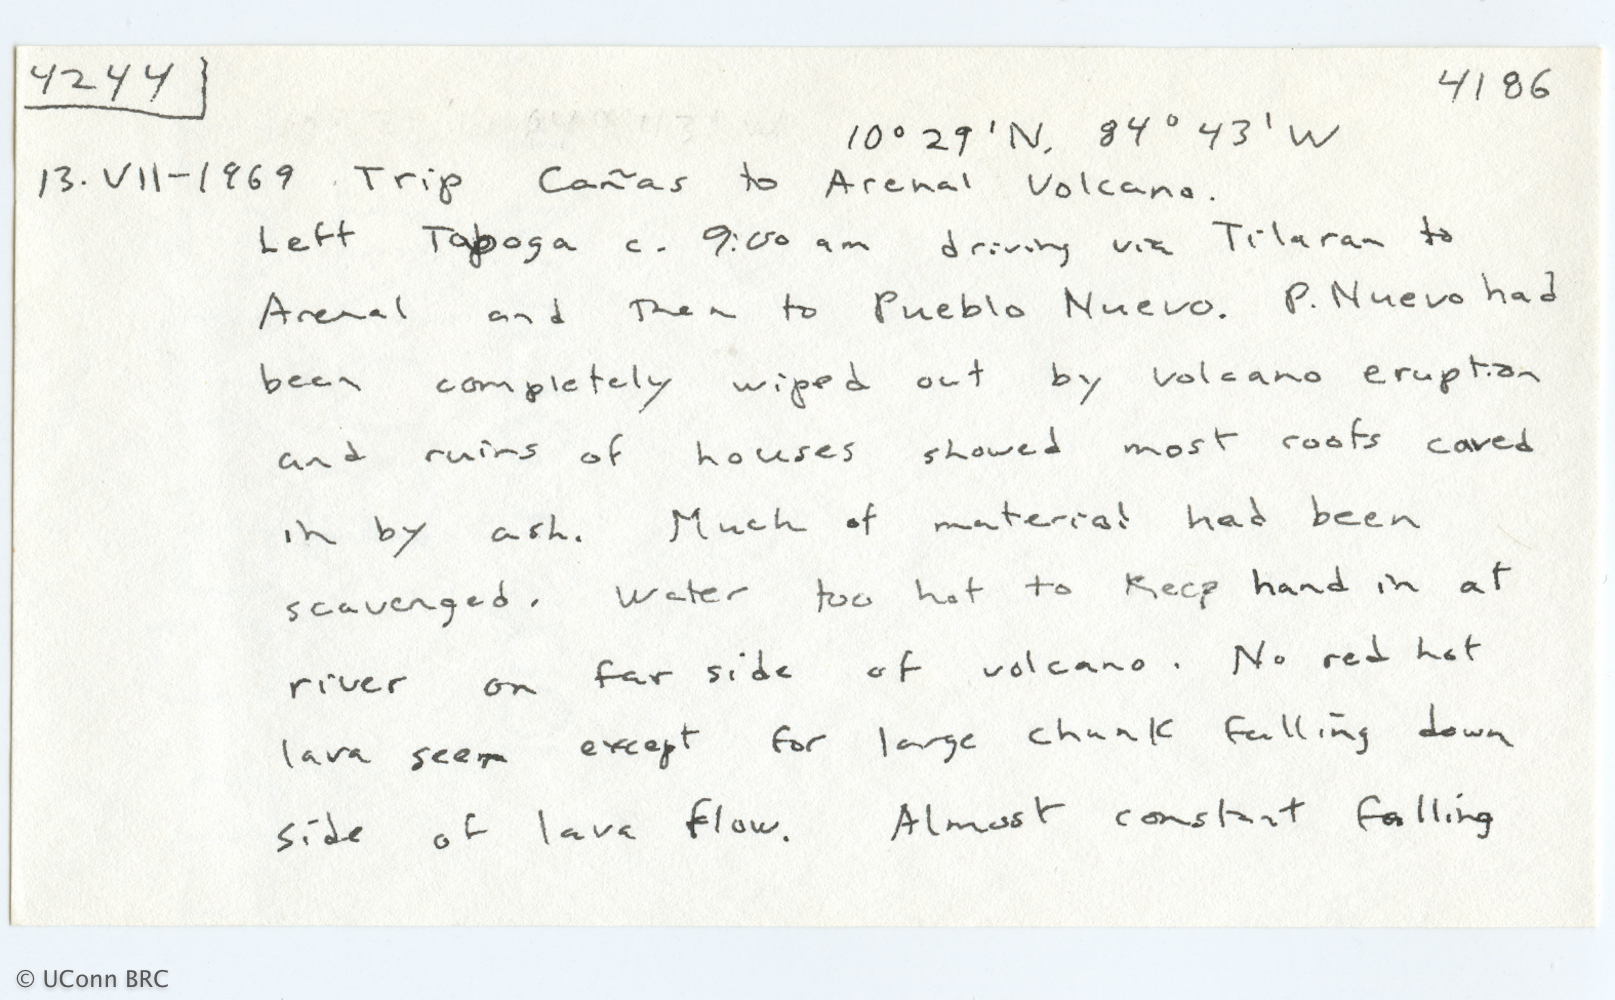 4244
4186
10° 29' N, 84° 43' W
13.VII-1969 Trip Cañas to Arenal Volcano.
Left Taboga c. 9:00 am driving via Tilaran to
Arenal and then to Pueblo Nuevo. P. Nuevo had
been completely wiped out by volcano eruption
and ruins of houses showed most roofs caved
in by ash. Much of material had been
scavenged. Water too hot to keep hand in at
river on far side of volcano. No red hot
lava seen except for large chunk falling down
side of lava flow. Almost constant falling
© UConn BRC